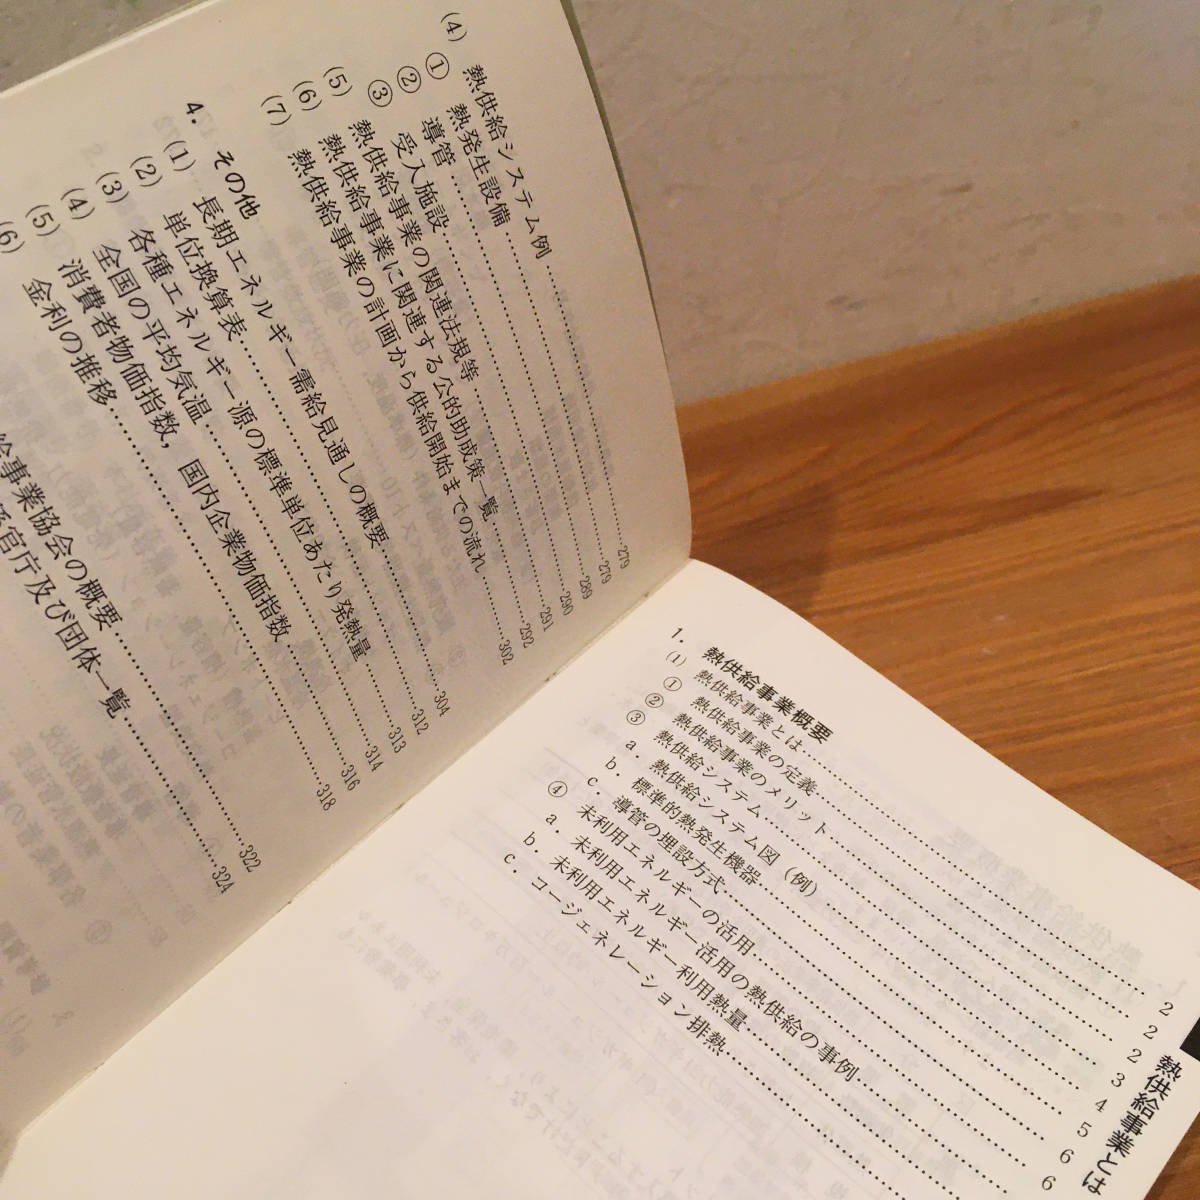 (4) 熱供給システム例……279
① 熱発生設備……279
② 導管……289
③ 受入施設……290
(5) 熱供給事業の関連法規等……291
(6) 熱供給事業に関連する公的助成策一覧……292
(7) 熱供給事業の計画から供給開始までの流れ……302
4. その他
(1) 長期エネルギー需給見通しの概要……304
(2) 単位換算表……312
(3) 各種エネルギー源の標準単位あたり発熱量……313
(4) 全国の平均気温……314
(5) 消費者物価指数，国内企業物価指数……316
(6) 金利の推移……318
給事業協会の概要……322
係官庁及び団体一覧……324
1. 熱供給事業概要
(1) 熱供給事業とは……2
① 熱供給事業の定義……2
② 熱供給事業のメリット……2
③ 熱供給システム……3
a. 熱供給システム図（例）……4
b. 標準的熱発生機器……5
c. 導管の埋設方式……6
④ 未利用エネルギーの活用……6
a. 未利用エネルギー活用の熱供給の事例……
b. 未利用エネルギー利用熱量……
c. コージェネレーション排熱……
熱供給事業とは